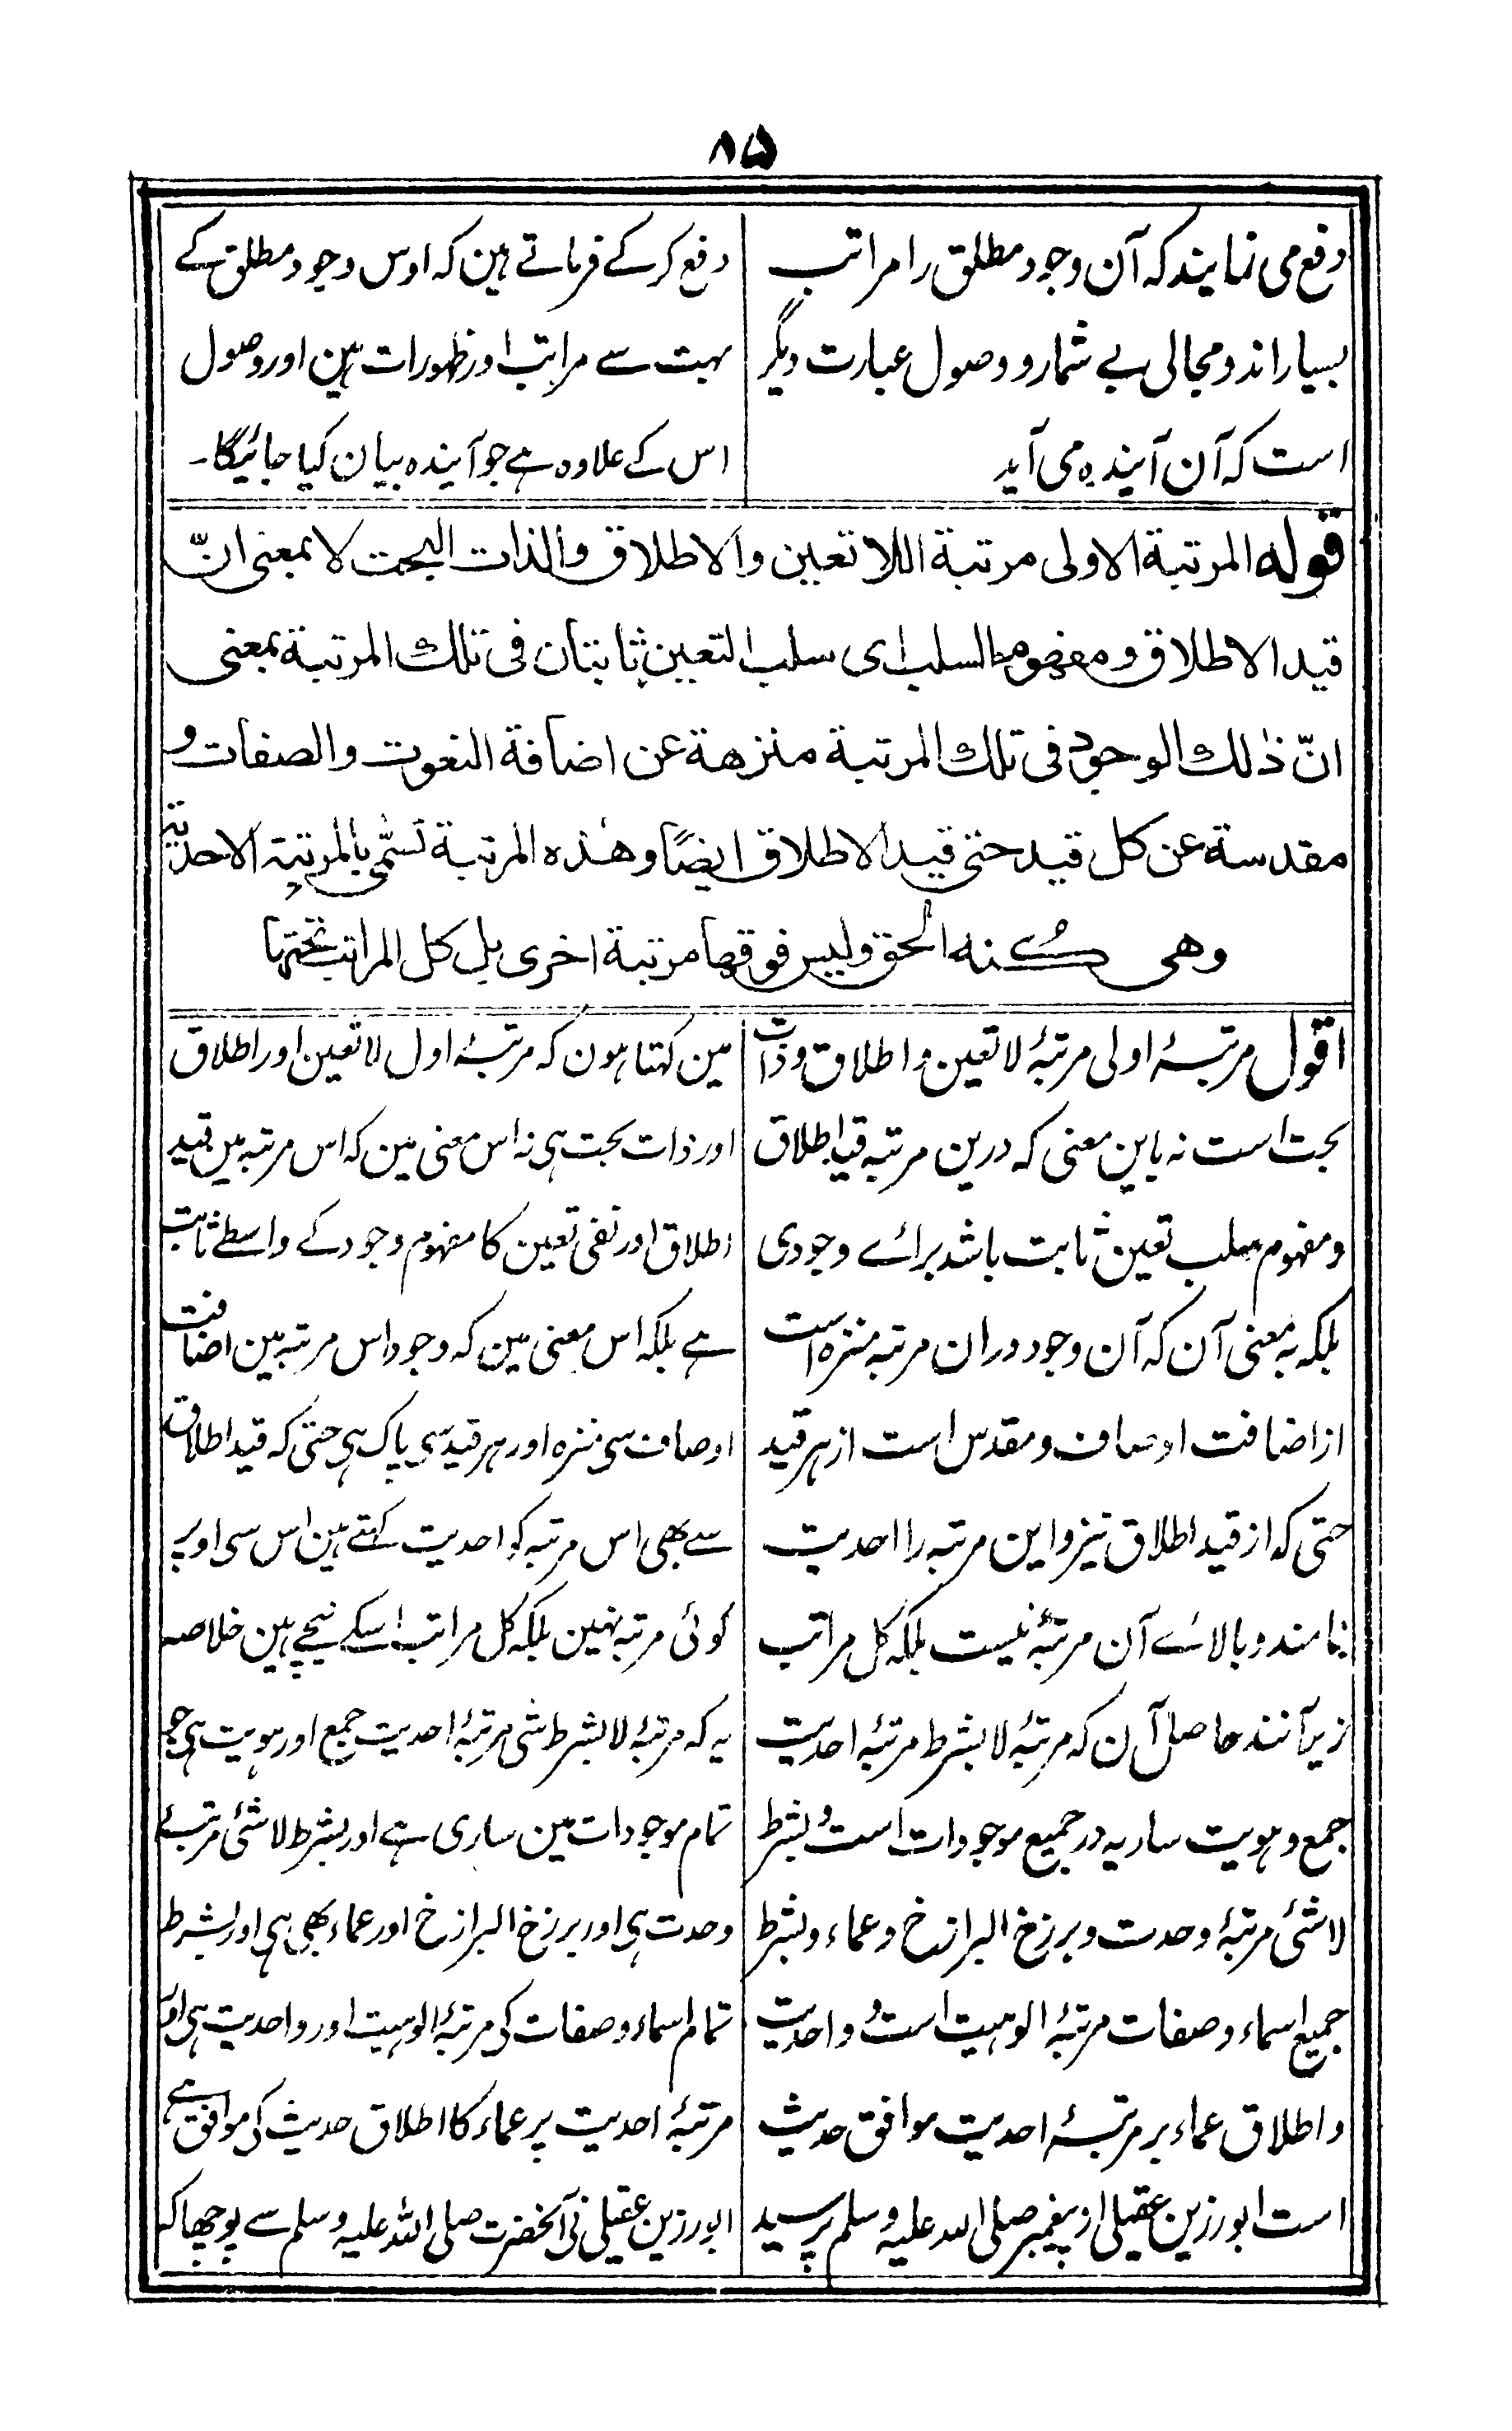 ۸۵
دفع می نمایند که آن وجود مطلق را مراتب
بسیار اند و مجالی بے شمار و وصول عبارت دیگر
است که آن آینده می آید
دفع کر کے فرماتے ہین کہ اوس وجود مطلق کے
بہت سے مراتب اور ظہورات ہین اور وصول
اس کے علاوہ ہے جو آیندہ بیان کیا جائیگا۔
قوله المرتبة الاولى مرتبة اللا تعين والاطلاق والذات البحت لا بمعنى انّ
قيد الاطلاق ومفهوم السلب اى سلب التعين ثابتان فى تلك المرتبة بمعنى
انّ ذلك الوجود فى تلك المرتبة منزهة عن اضافة النعوت والصفات و
مقدسة عن كل قيد حتى قيد الاطلاق ايضًا وهذه المرتبة تسمّى بالمرتبة الاحدية
وهى كُنه الحق وليس فوقها مرتبة اخرى بل كل المراتب تحتها
اقول مرتبۂ اولی مرتبۂ لا تعین و اطلاق و ذات
بحت است نہ باین معنی کہ درین مرتبہ قید اطلاق
و مفہوم سلب تعین ثابت باشد براے وجودی
بلکہ بہ معنی آن کہ آن وجود دران مرتبہ منزہ است
از اضافت اوصاف و مقدس است از ہر قید
حتی کہ از قید اطلاق نیز و این مرتبہ را احدیت
نامند و بالاے آن مرتبۂ نیست بلکہ کل مراتب
زیر آنند حاصل آن کہ مرتبۂ لا بشرط مرتبۂ احدیت
جمع و ہویت ساریہ در جمیع موجودات است و بشرط
لاشئ مرتبۂ وحدت و برزخ البرازخ و عماء و بشرط
جمیع اسماء و صفات مرتبۂ الوہیت است و احدیت
و اطلاق عماء بر مرتبۂ احدیت موافق حدیث
است ابو رزین عقیلی از پیغمبر صلی اللہ علیہ وسلم پرسید
مین کہتا ہون کہ مرتبۂ اول لا تعین اور اطلاق
اور ذات بحت ہی نہ اس معنی مین کہ اس مرتبہ میں قید
اطلاق اور نفی تعین کا مفہوم وجود کے واسطے ثابت
ہے بلکہ اس معنی مین کہ وجود اس مرتبہ مین اضافت
اوصاف سی منزہ اور ہر قید سی پاک ہی حتی کہ قید اطلاق
سے بھی اس مرتبہ کو احدیت کہتے ہین اس سی اوپر
کوئی مرتبہ نہین بلکہ کل مراتب اسکے نیچے ہین خلاصہ
یہ کہ مرتبۂ لا بشرط شی مرتبۂ احدیت جمع اور ہویت ہی جو
تمام موجودات مین ساری ہے اور بشرط لا شئ مرتبۂ
وحدت ہی اور برزخ البرازخ اور عماء بھی ہی اور بشرط
تمام اسماء و صفات کی مرتبۂ الوہیت اور واحدیت ہی اور
مرتبۂ احدیت پر عماء کا اطلاق حدیث کی موافق ہے
ابو رزین عقیلی نی آنحضرت صلی اللہ علیہ وسلم سے پوچھا کہ